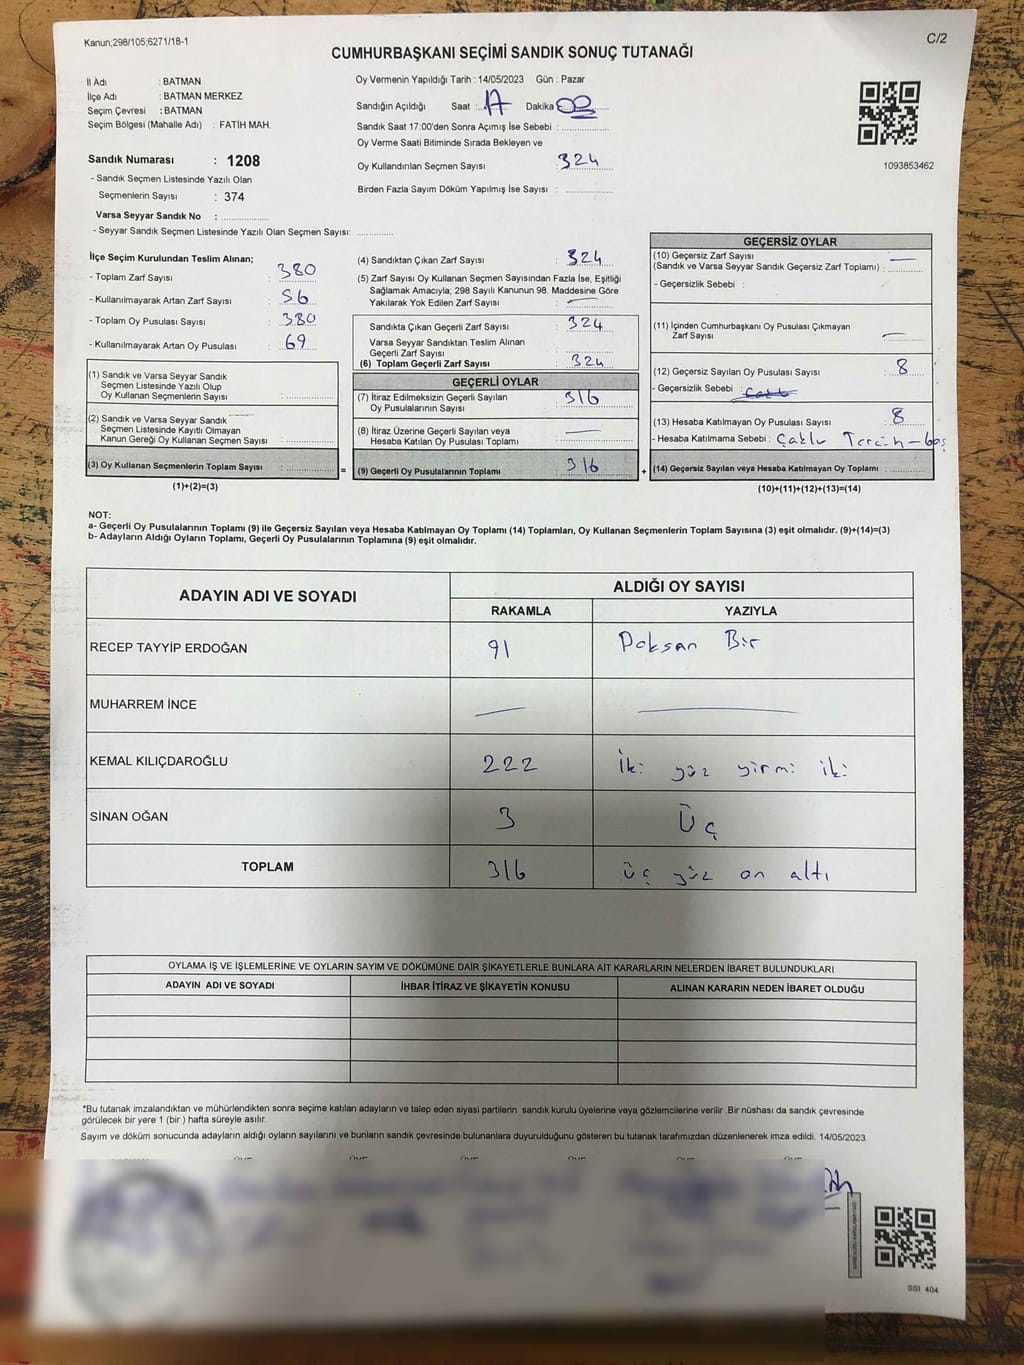 Kanun;298/105;6271/18-1
C/2
CUMHURBAŞKANI SEÇİMİ SANDIK SONUÇ TUTANAĞI
İl Adı : BATMAN
İlçe Adı : BATMAN MERKEZ
Seçim Çevresi : BATMAN
Seçim Bölgesi (Mahalle Adı) : FATİH MAH.
Sandık Numarası : 1208
- Sandık Seçmen Listesinde Yazılı Olan
Seçmenlerin Sayısı : 374
Varsa Seyyar Sandık No : ..................
- Seyyar Sandık Seçmen Listesinde Yazılı Olan Seçmen Sayısı: ..............
Oy Vermenin Yapıldığı Tarih : 14/05/2023 Gün : Pazar
Sandığın Açıldığı Saat : 17 Dakika 00
Sandık Saat 17:00'den Sonra Açımış İse Sebebi : ..................
Oy Verme Saati Bitiminde Sırada Bekleyen ve
Oy Kullandırılan Seçmen Sayısı : 324
Birden Fazla Sayım Döküm Yapılmış İse Sayısı : ..................
1093853462
İlçe Seçim Kurulundan Teslim Alınan;
- Toplam Zarf Sayısı : 380
- Kullanılmayarak Artan Zarf Sayısı : 56
- Toplam Oy Pusulası Sayısı : 380
- Kullanılmayarak Artan Oy Pusulası : 69
(1) Sandık ve Varsa Seyyar Sandık
Seçmen Listesinde Yazılı Olup
Oy Kullanan Seçmenlerin Sayısı : ..................
(2) Sandık ve Varsa Seyyar Sandık
Seçmen Listesinde Kayıtlı Olmayan
Kanun Gereği Oy Kullanan Seçmen Sayısı : ..................
(3) Oy Kullanan Seçmenlerin Toplam Sayısı : ..................
(1)+(2)=(3)
=
(4) Sandıktan Çıkan Zarf Sayısı : 324
(5) Zarf Sayısı Oy Kullanan Seçmen Sayısından Fazla İse, Eşitliği
Sağlamak Amacıyla; 298 Sayılı Kanunun 98. Maddesine Göre
Yakılarak Yok Edilen Zarf Sayısı : —
Sandıkta Çıkan Geçerli Zarf Sayısı : 324
Varsa Seyyar Sandıktan Teslim Alınan
Geçerli Zarf Sayısı : ..................
(6) Toplam Geçerli Zarf Sayısı : 324
GEÇERLİ OYLAR
(7) İtiraz Edilmeksizin Geçerli Sayılan
Oy Pusulalarının Sayısı : 316
(8) İtiraz Üzerine Geçerli Sayılan veya
Hesaba Katılan Oy Pusulası Toplamı : —
(9) Geçerli Oy Pusulalarının Toplamı : 316
+
GEÇERSİZ OYLAR
(10) Geçersiz Zarf Sayısı —
(Sandık ve Varsa Seyyar Sandık Geçersiz Zarf Toplamı) : ............
- Geçersizlik Sebebi :
(11) İçinden Cumhurbaşkanı Oy Pusulası Çıkmayan
Zarf Sayısı : —
(12) Geçersiz Sayılan Oy Pusulası Sayısı : 8
- Geçersizlik Sebebi :
(13) Hesaba Katılmayan Oy Pusulası Sayısı : 8
- Hesaba Katılmama Sebebi : Çoklu Tercih - boş
(14) Geçersiz Sayılan veya Hesaba Katılmayan Oy Toplamı : ............
(10)+(11)+(12)+(13)=(14)
NOT:
a- Geçerli Oy Pusulalarının Toplamı (9) ile Geçersiz Sayılan veya Hesaba Katılmayan Oy Toplamı (14) Toplamları, Oy Kullanan Seçmenlerin Toplam Sayısına (3) eşit olmalıdır. (9)+(14)=(3)
b- Adayların Aldığı Oyların Toplamı, Geçerli Oy Pusulalarının Toplamına (9) eşit olmalıdır.
ADAYIN ADI VE SOYADI
ALDIĞI OY SAYISI
RAKAMLA YAZIYLA
RECEP TAYYİP ERDOĞAN 91 Doksan Bir
MUHARREM İNCE — —
KEMAL KILIÇDAROĞLU 222 İki yüz yirmi iki
SİNAN OĞAN 3 Üç
TOPLAM 316 üç yüz on altı
OYLAMA İŞ VE İŞLEMLERİNE VE OYLARIN SAYIM VE DÖKÜMÜNE DAİR ŞİKAYETLERLE BUNLARA AİT KARARLARIN NELERDEN İBARET BULUNDUKLARI
ADAYIN ADI VE SOYADI İHBAR İTİRAZ VE ŞİKAYETİN KONUSU ALINAN KARARIN NEDEN İBARET OLDUĞU
*Bu tutanak imzalandıktan ve mühürlendikten sonra seçime katılan adayların ve talep eden siyasi partilerin sandık kurulu üyelerine veya gözlemcilerine verilir .Bir nüshası da sandık çevresinde
görülecek bir yere 1 (bir ) hafta süreyle asılır.
Sayım ve döküm sonucunda adayların aldığı oyların sayılarını ve bunların sandık çevresinde bulunanlara duyurulduğunu gösteren bu tutanak tarafımızdan düzenlenerek imza edildi. 14/05/2023
SSI 404